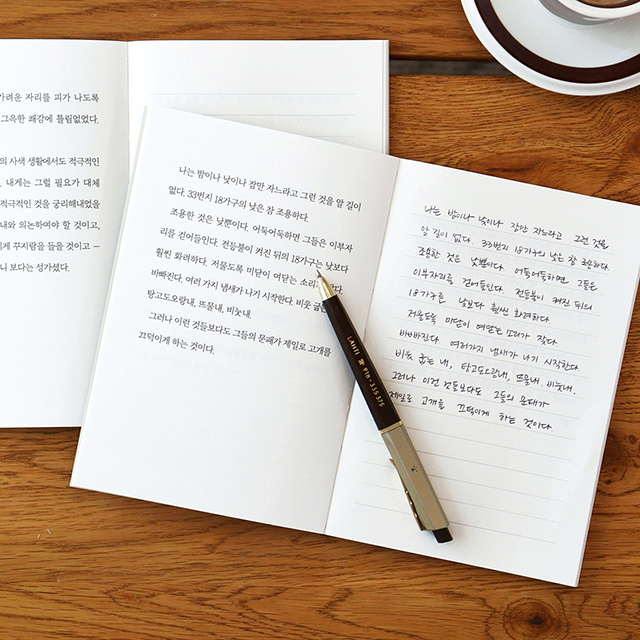 가려운 자리를 피가 나도록
그윽한 쾌감에 틀림없었다.
의 사색 생활에서도 적극적인
내게는 그럴 필요가 대체
적극적인 것을 궁리해내었을
내와 의논하여야 할 것이고,
게 꾸지람을 들을 것이고 –
니 보다는 성가셨다.
나는 밤이나 낮이나 잠만 자느라고 그런 것을 알 길이
없다. 33번지 18가구의 낮은 참 조용하다.
조용한 것은 낮뿐이다. 어둑어둑하면 그들은 이부자
리를 걷어들인다. 전등불이 켜진 뒤의 18가구는 낮보다
훨씬 화려하다. 저물도록 미닫이 여닫는 소리
바빠진다. 여러 가지 냄새가 나기 시작한다. 비웃 굽는
탕고도오랑내, 뜨물내, 비눗내.
그러나 이런 것들보다도 그들의 문패가 제일로 고개를
끄덕이게 하는 것이다.
나는 밤이나 낮이나 잠만 자느라고 그런 것을
알 길이 없다. 33번지 18가구의 낮은 참 조용하다.
조용한 것은 낮뿐이다. 어둑어둑하면 그들은
이부자리를 걷어들인다. 전등불이 켜진 뒤의
18가구는 낮보다 훨씬 화려하다.
저물도록 미닫이 여닫는 소리가 잦다.
바빠진다. 여러가지 냄새가 나기 시작한다.
비웃 굽는 내, 탕고도오랑내, 뜨물내, 비눗내.
그러나 이런 것들보다도 그들의 문패가
제일로 고개를 끄덕이게 하는 것이다
LAHTI 018-335375